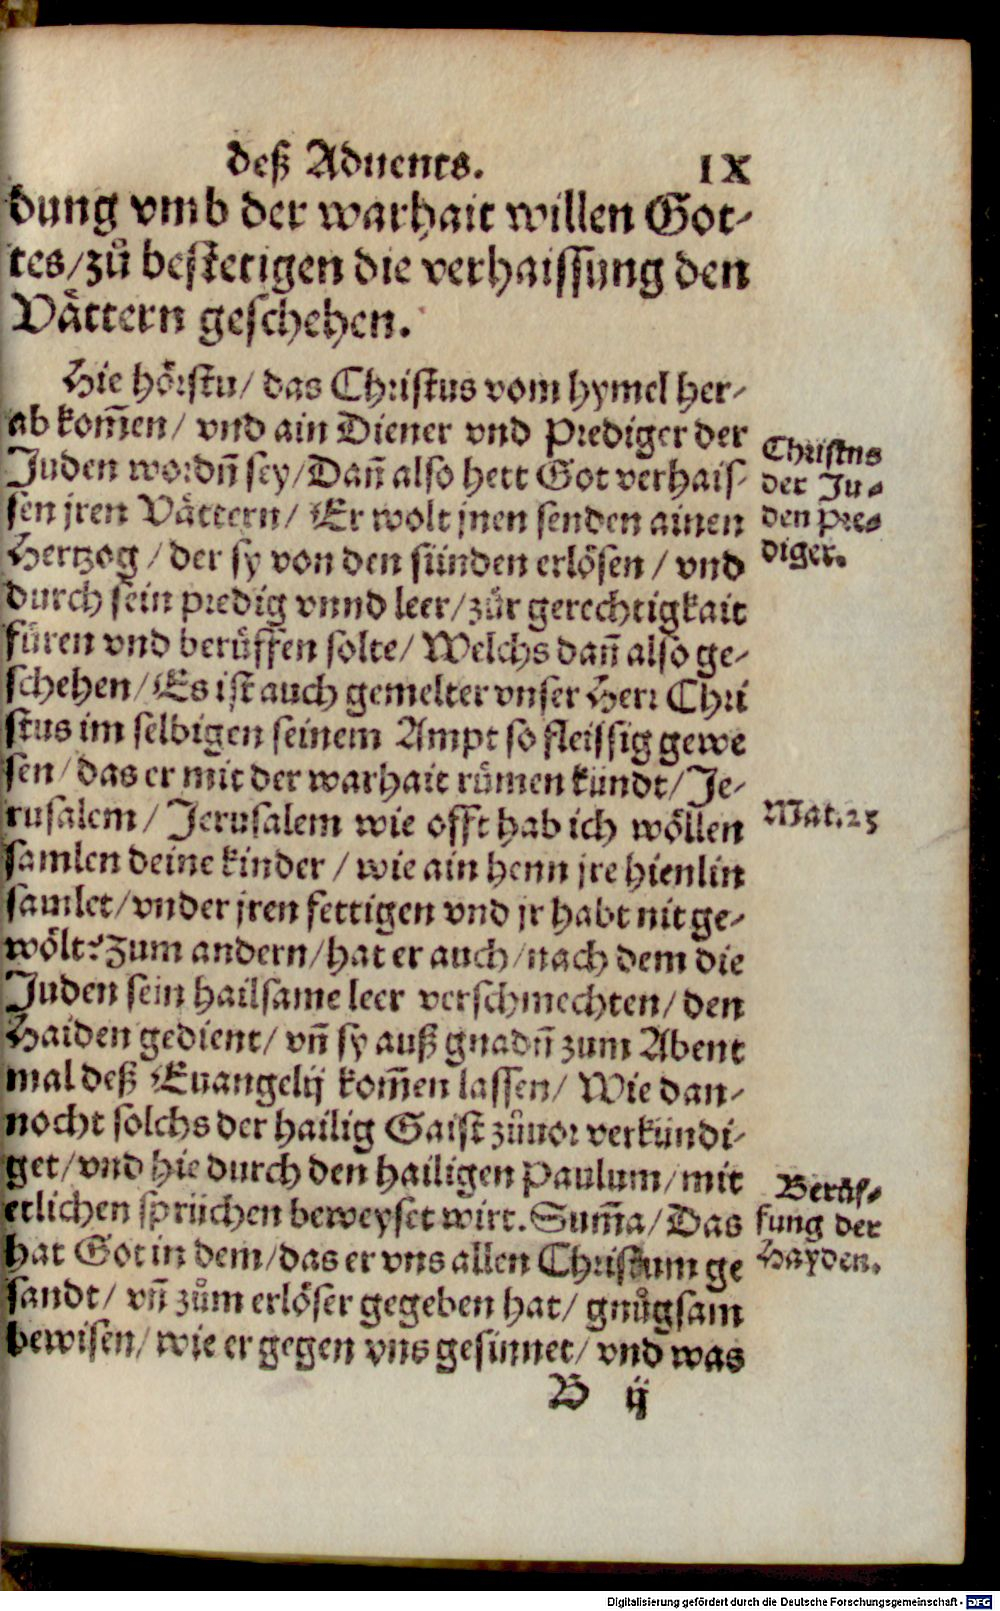 deß Aduents. IX
dung vmb der warhait willen Got-
tes/zů bestetigen die verhaissung den
Vättern geschehen.
Hie hörstu/ das Christus vom hymel her-
ab kom̃en/ vnd ain Diener vnd Prediger der
Juden wordñ sey/Dañ also hett Got verhais-
sen jren Vättern/ Er wolt jnen senden ainen
Hertzog/der sy von den sünden erlösen/ vnd
durch sein predig vnnd leer/zůr gerechtigkait
füren vnd berůffen solte/ Welchs dañ also ge-
schehen/Es ist auch gemelter vnser Herr Chri
stus im selbigen seinem Ampt so fleissig gewe
sen/das er mit der warhait růmen kündt/Je-
rusalem/ Jerusalem wie offt hab ich wöllen
samlen deine kinder/ wie ain henn jre hienlin
samlet/vnder jren fettigen vnd jr habt nit ge-
wölt? Zum andern/hat er auch/nach dem die
Juden sein hailsame leer verschmechten/ den
Haiden gedient/ vñ sy auß gnadñ zum Abent
mal deß Euangelij kom̃en lassen/ Wie dan-
nocht solchs der hailig Gaist zůuor verkündi-
get/vnd hie durch den hailigen Paulum/mit
etlichen sprüchen beweyset wirt. Sum̃a/Das
hat Got in dem/das er vns allen Christum ge
sandt/ vñ zům erlöser gegeben hat/ gnůgsam
bewisen/wie er gegen vns gesinnet/ vnd was
B ij
Christus
der Ju-
den pre-
diger.
Mat.23
Berůf-
fung der
Hayden.
Digitalisierung gefördert durch die Deutsche Forschungsgemeinschaft - DFG